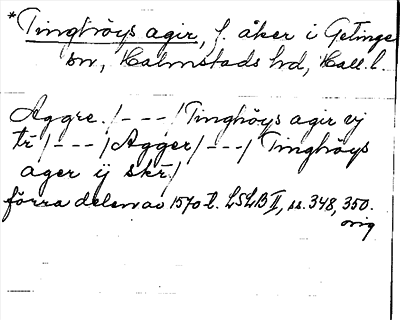 *Tinghöys agir, f. åker i Getinge
sn, Halmstads hd, Hall. l.
Aggre. /---/ Tinghöys agir ej
tr /---/ Agger /---/ Tinghöys
ager ij skr /
förra delen av 1570 t. LSLB II, ss. 348, 350.
orig